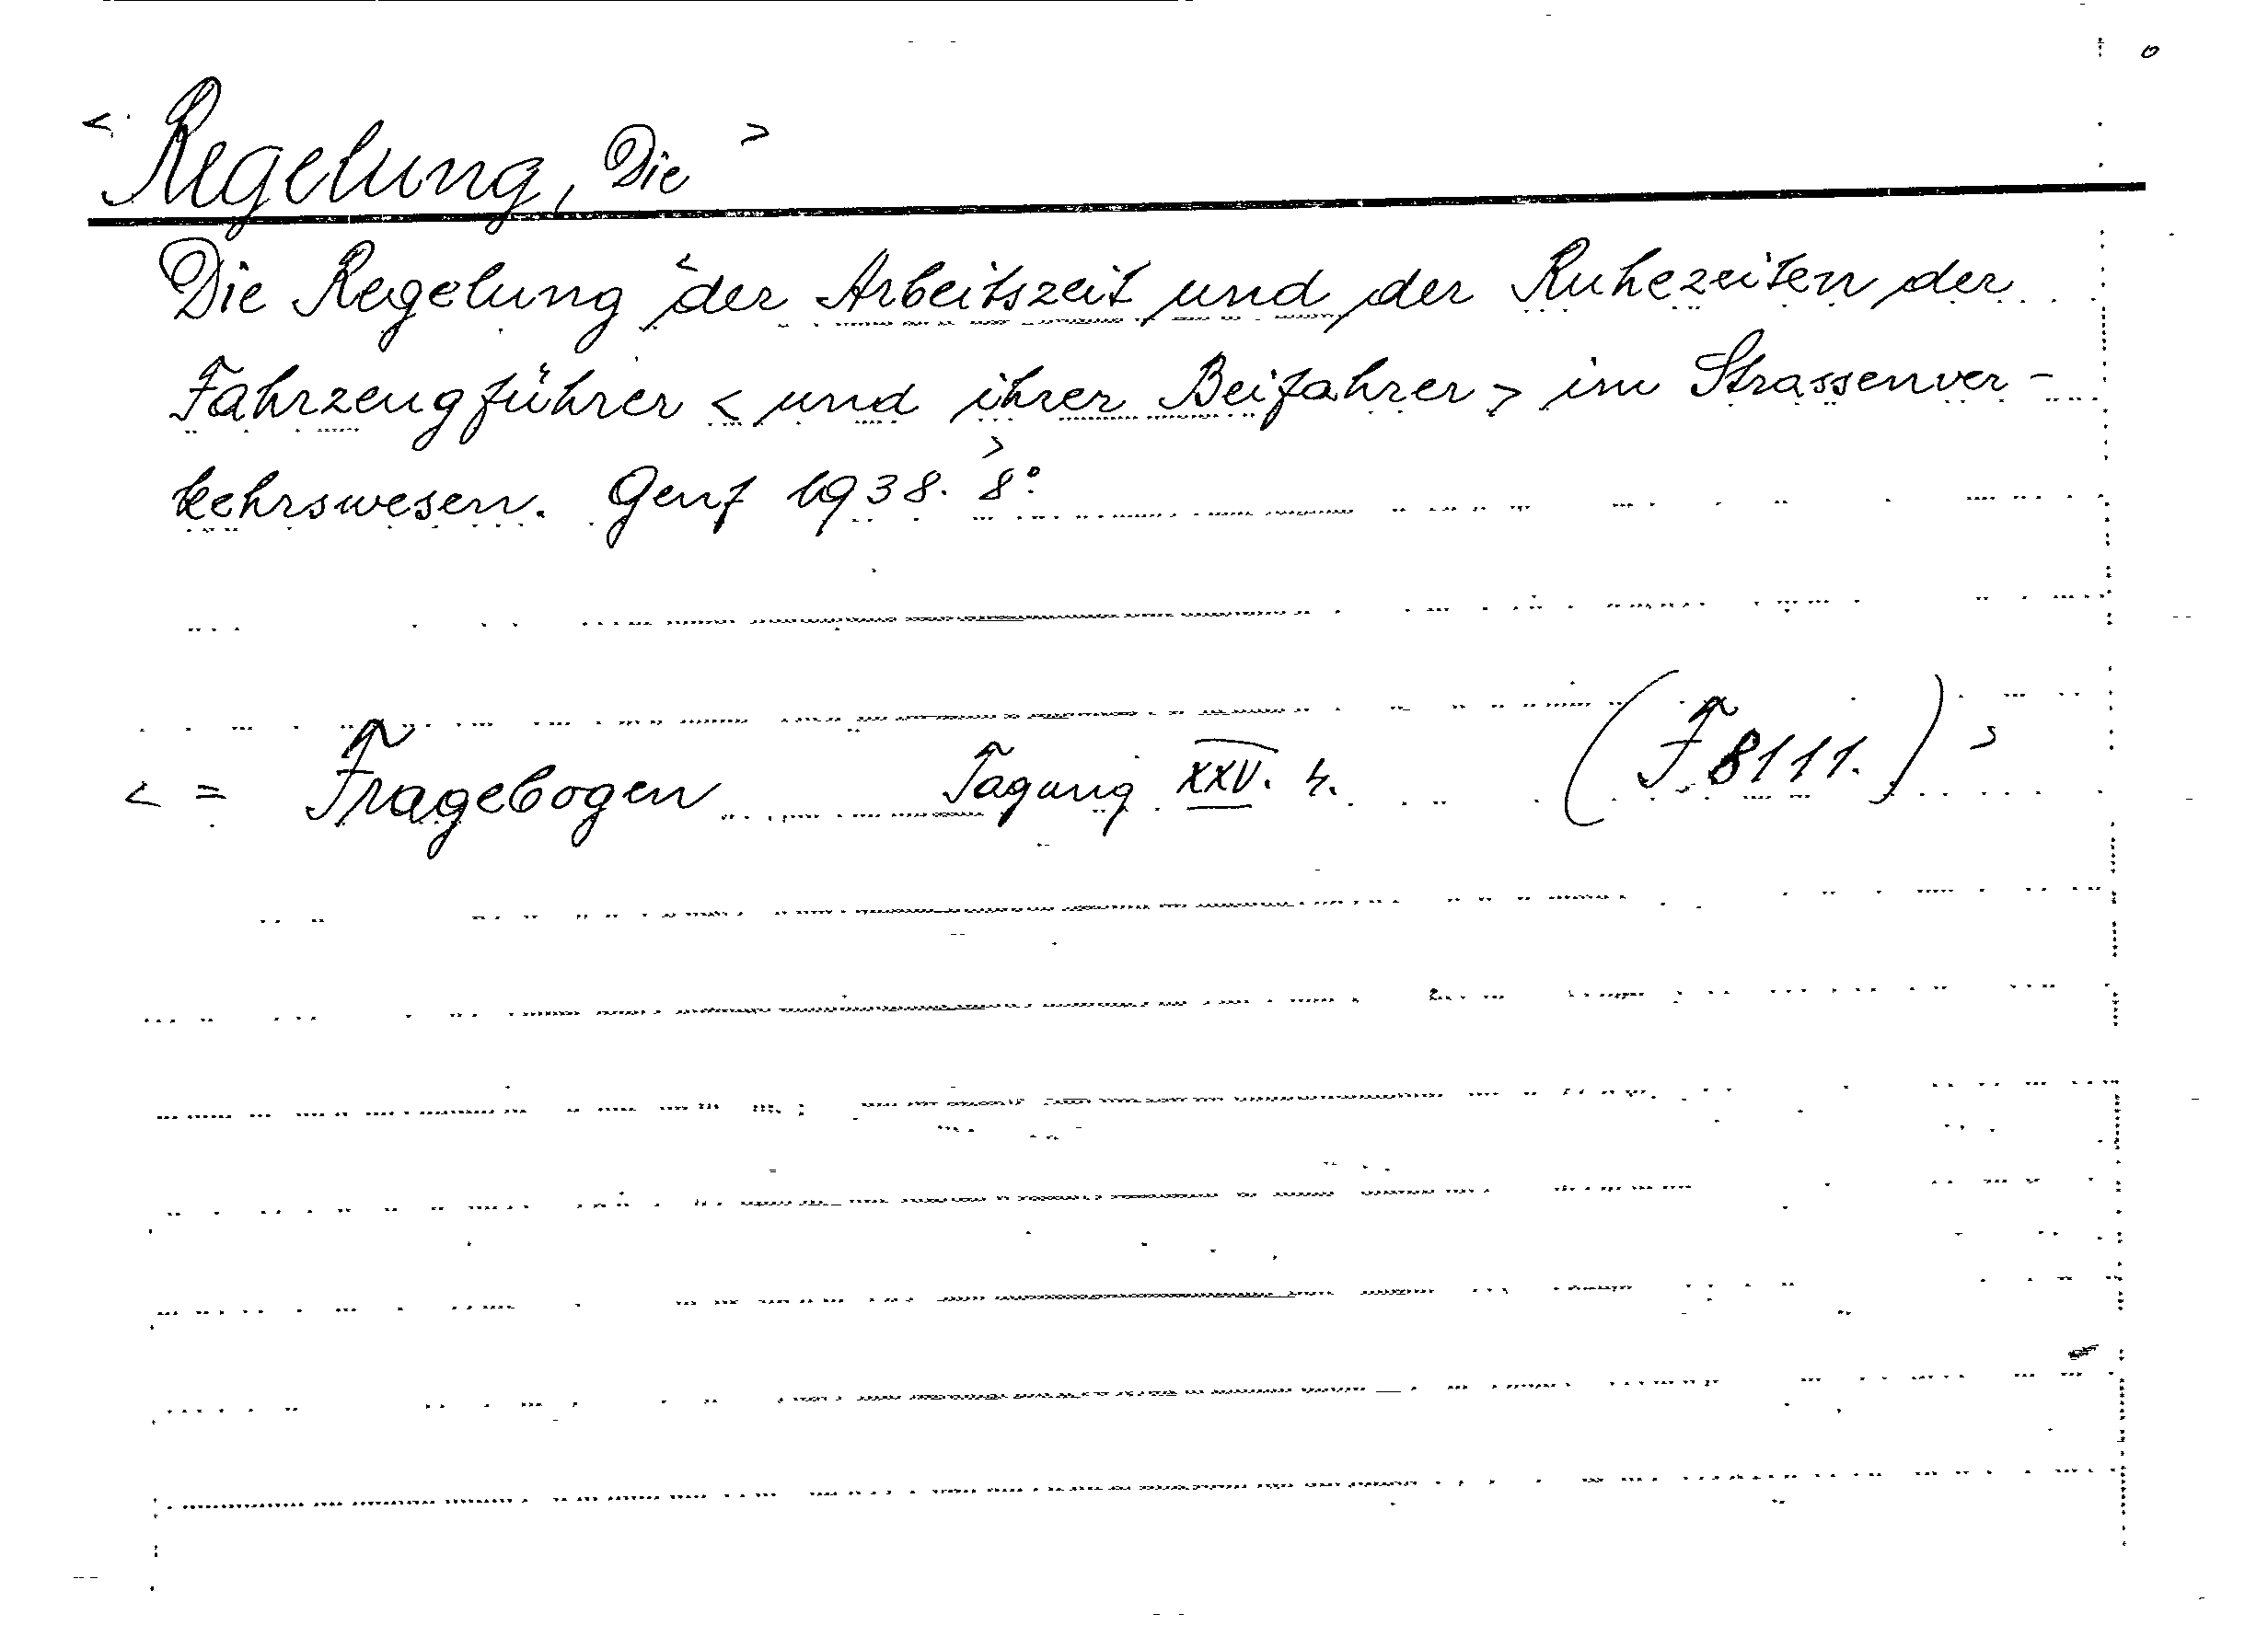 < Regelung, Die >
Die Regelung < der Arbeitszeit und der Ruhezeiten der
Fahrzeugführer < und ihrer Beifahrer > im Strassenver-
kehrswesen. Genf 1938. > 8°.
< = Fragebogen Tagung XXV. 4. (F 8111.) >